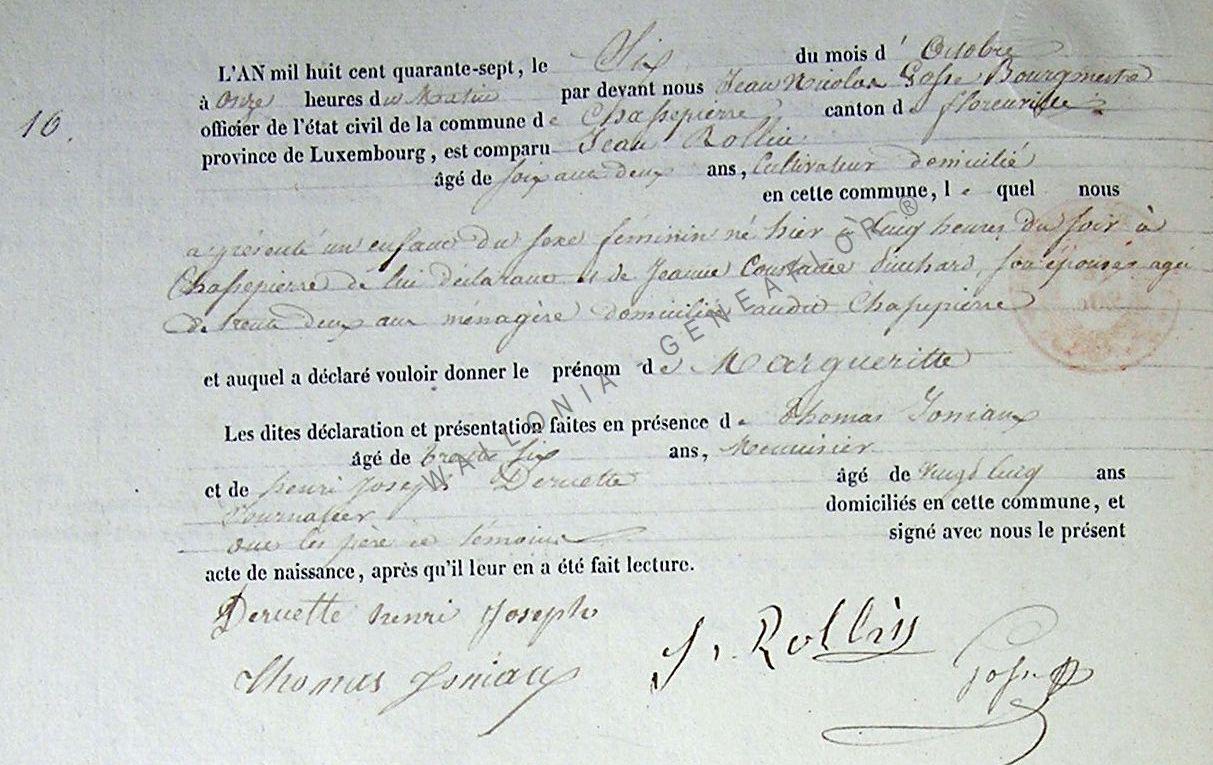 16.
L'AN mil huit cent quarante-sept, le Six du mois d' Octobre
à Onze heures du Matin par devant nous Jean Nicolas Gosse Bourgmestre
officier de l'état civil de la commune de Chassepierre canton de florenville
province de Luxembourg, est comparu Jean Rollin
âgé de soixante deux ans, Cultivateur domicilié
en cette commune, le quel nous
a présenté un enfant du sexe féminin né hier à Cinq heures du soir à
Chassepierre de lui déclarant et de Jeanne Constance son épouse, agée
de trente deux ans ménagère domiciliée audit Chassepierre
et auquel a déclaré vouloir donner le prénom de Margueritte
Les dites déclaration et présentation faites en présence de Thomas Joniaux
âgé de trente six ans, Meunier
et de henri Joseph Deruette âgé de Vingt Cinq ans
Journalier domiciliés en cette commune, et
ont les père et témoins signé avec nous le présent
acte de naissance, après qu'il leur en a été fait lecture.
Deruette henri Joseph
J. Rollin
Thomas Joniaux
Gosse
WALLONIA GENEALOR ®